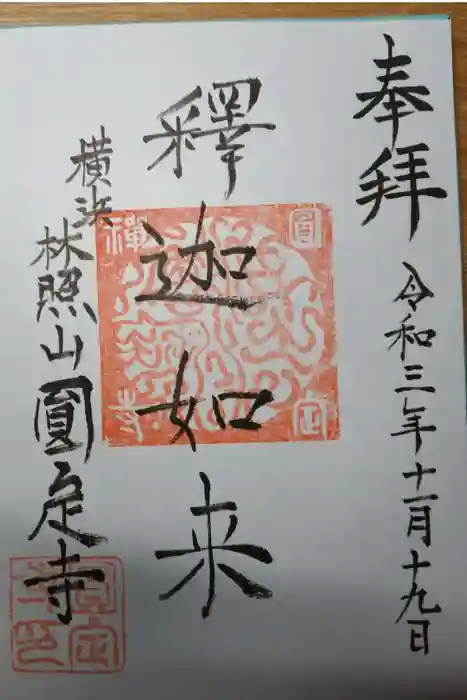 奉拝
令和三年十一月十九日
釋迦如来
横浜
林照山圓定寺
圓
禅
定
寺